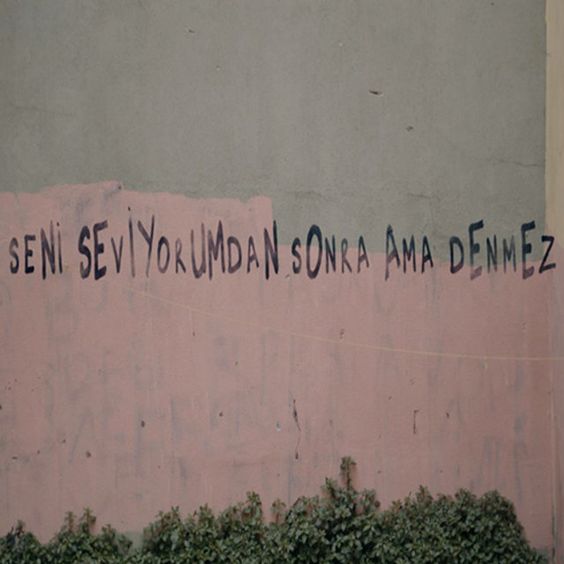 SENİ SEVİYORUMDAN SONRA AMA DENMEZ